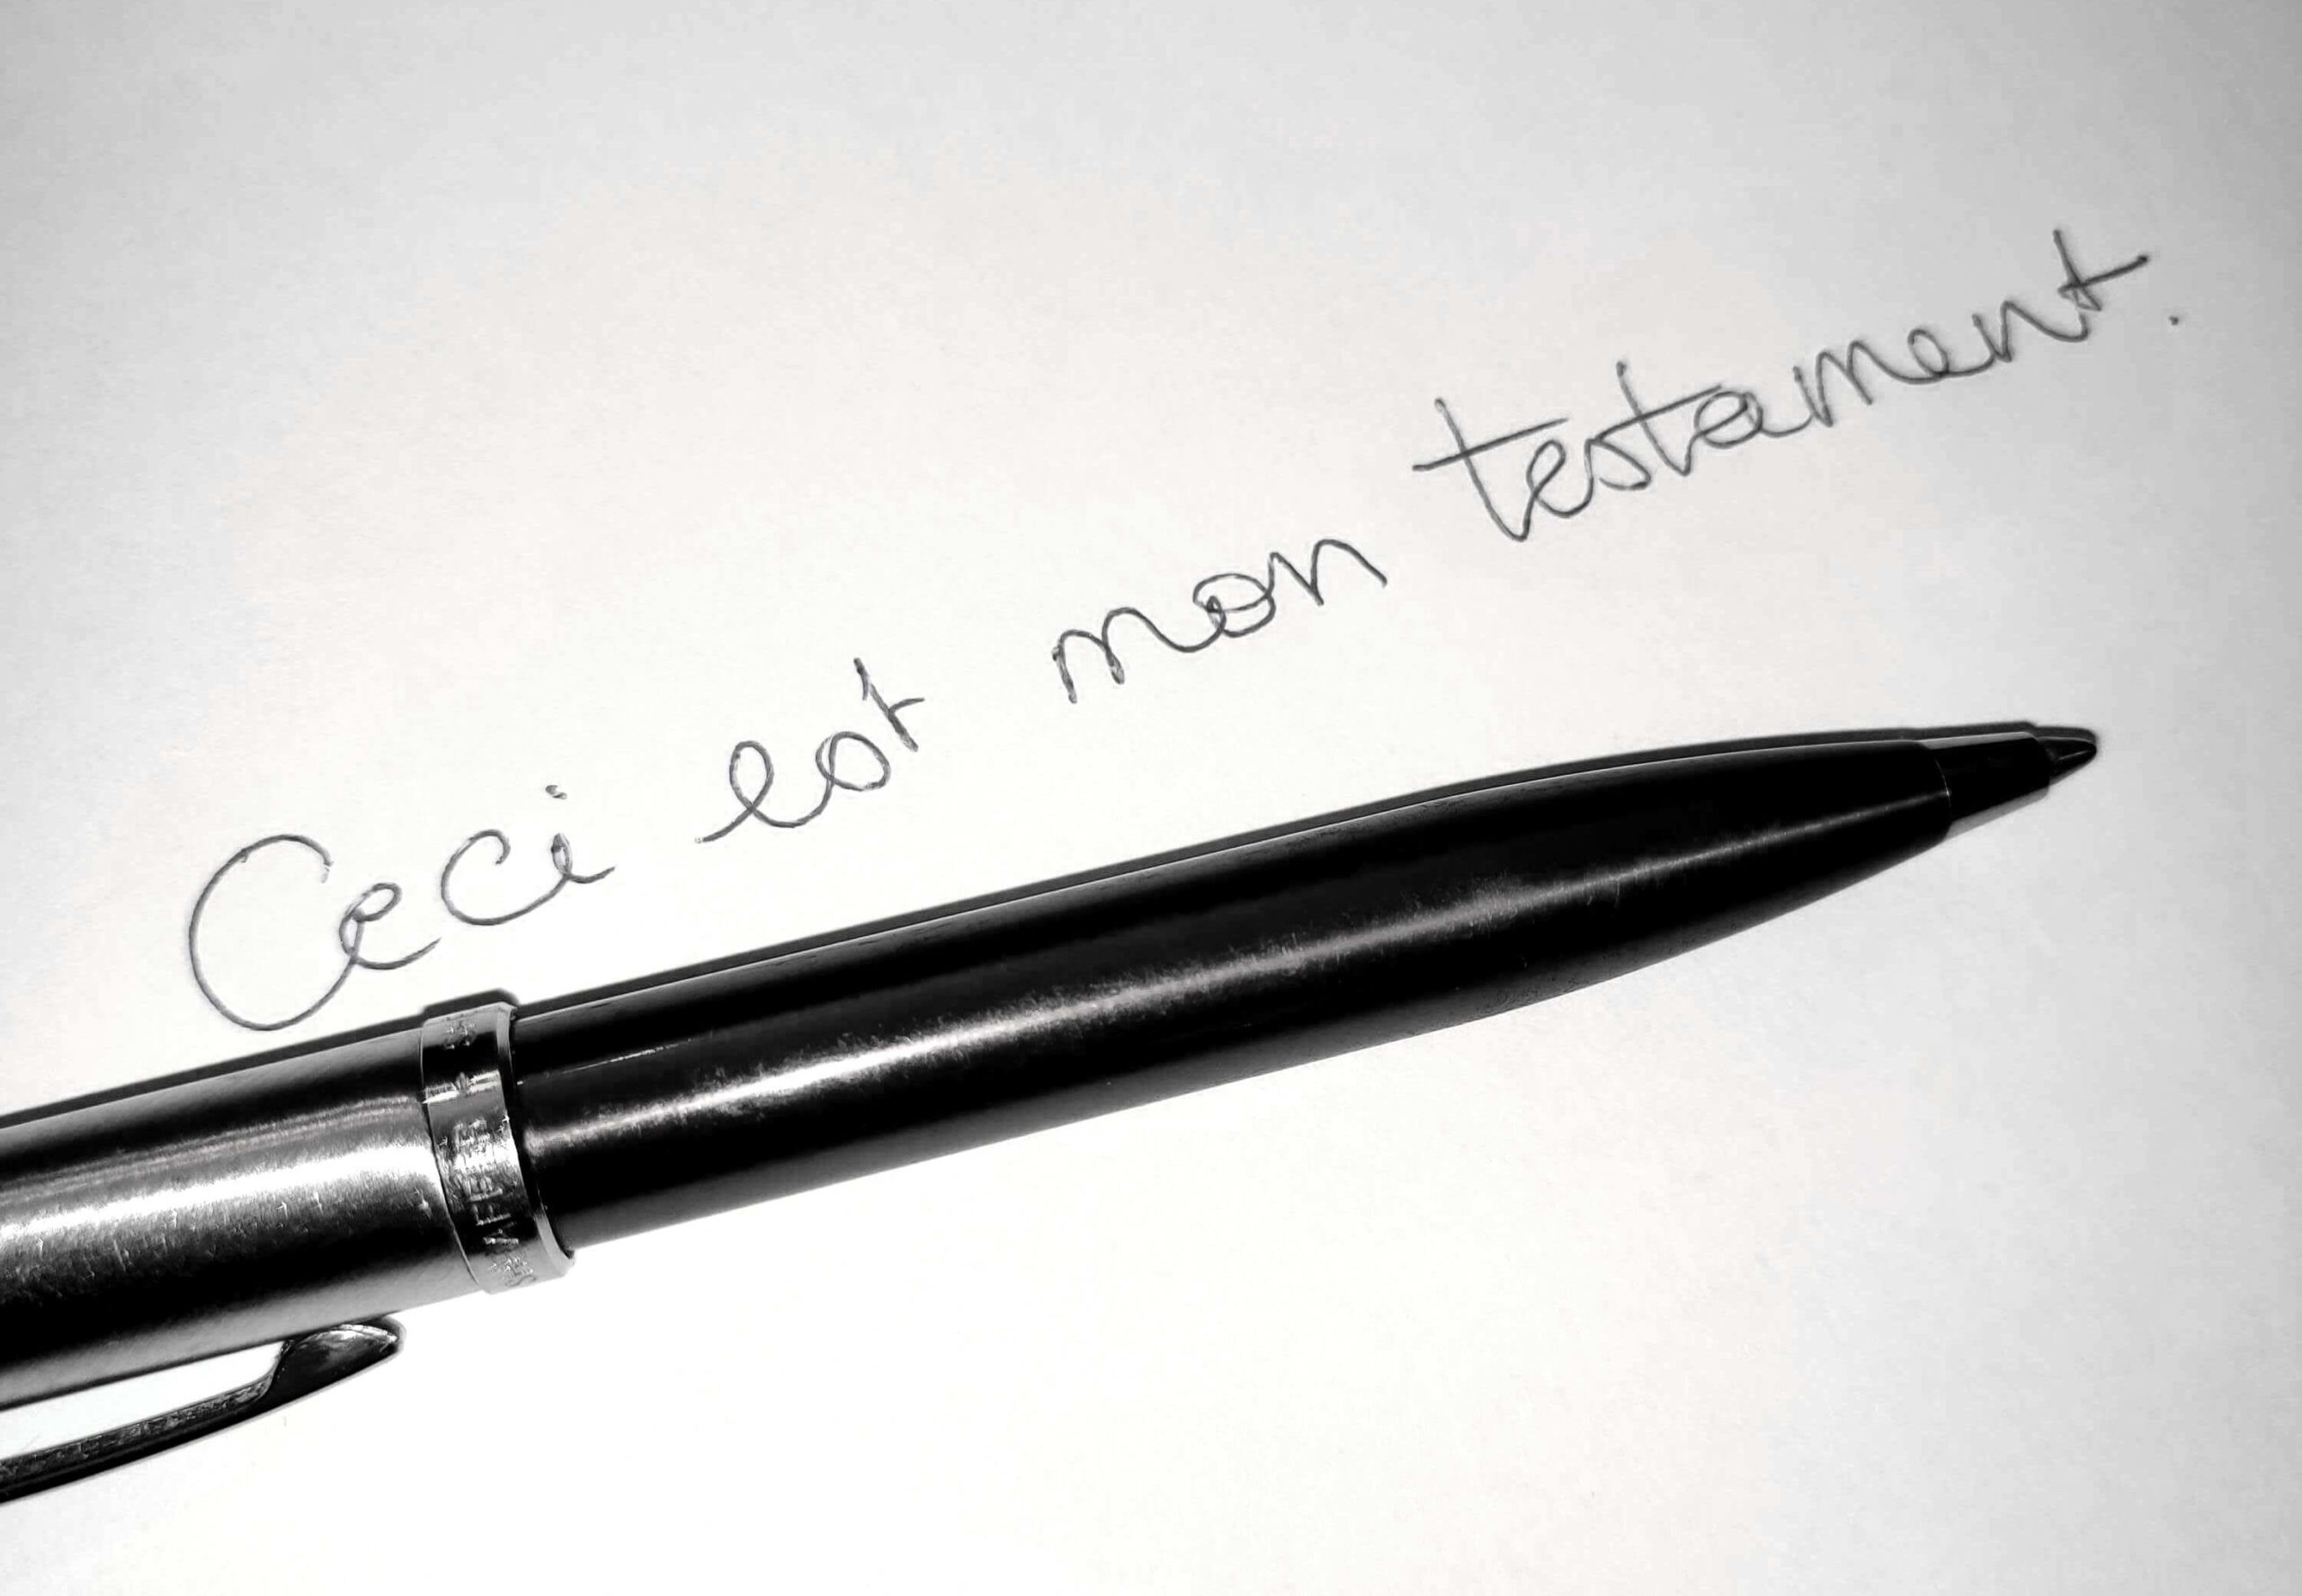 Ceci est mon testament.
SHEAFFER